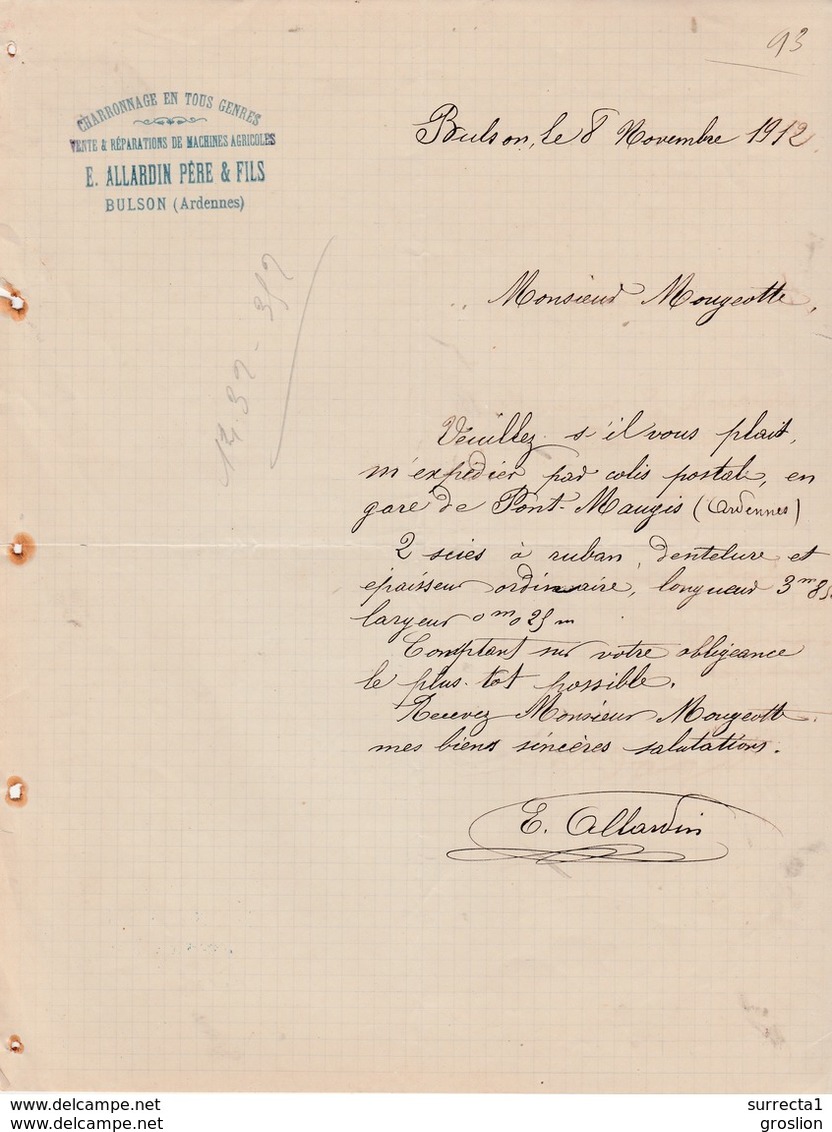 93
CHARRONNAGE EN TOUS GENRES
VENTE & RÉPARATIONS DE MACHINES AGRICOLES
E. ALLARDIN PÈRE & FILS
BULSON (Ardennes)
Bulson, le 8 Novembre 1912
Monsieur Mougeotte,
Veuillez s'il vous plait,
m'expédier par colis postal, en
gare de Pont-Maugis (Ardennes)
2 scies à ruban, dentelure et
épaisseur ordinaire, longueur 3m 85
largeur 0m 025m
Comptant sur votre obligeance
le plus tot possible.
Recevez Monsieur Mougeotte
mes biens sincères salutations.
E. Allardin
www.delcampe.net surrecta1
www.delcampe.net groslion